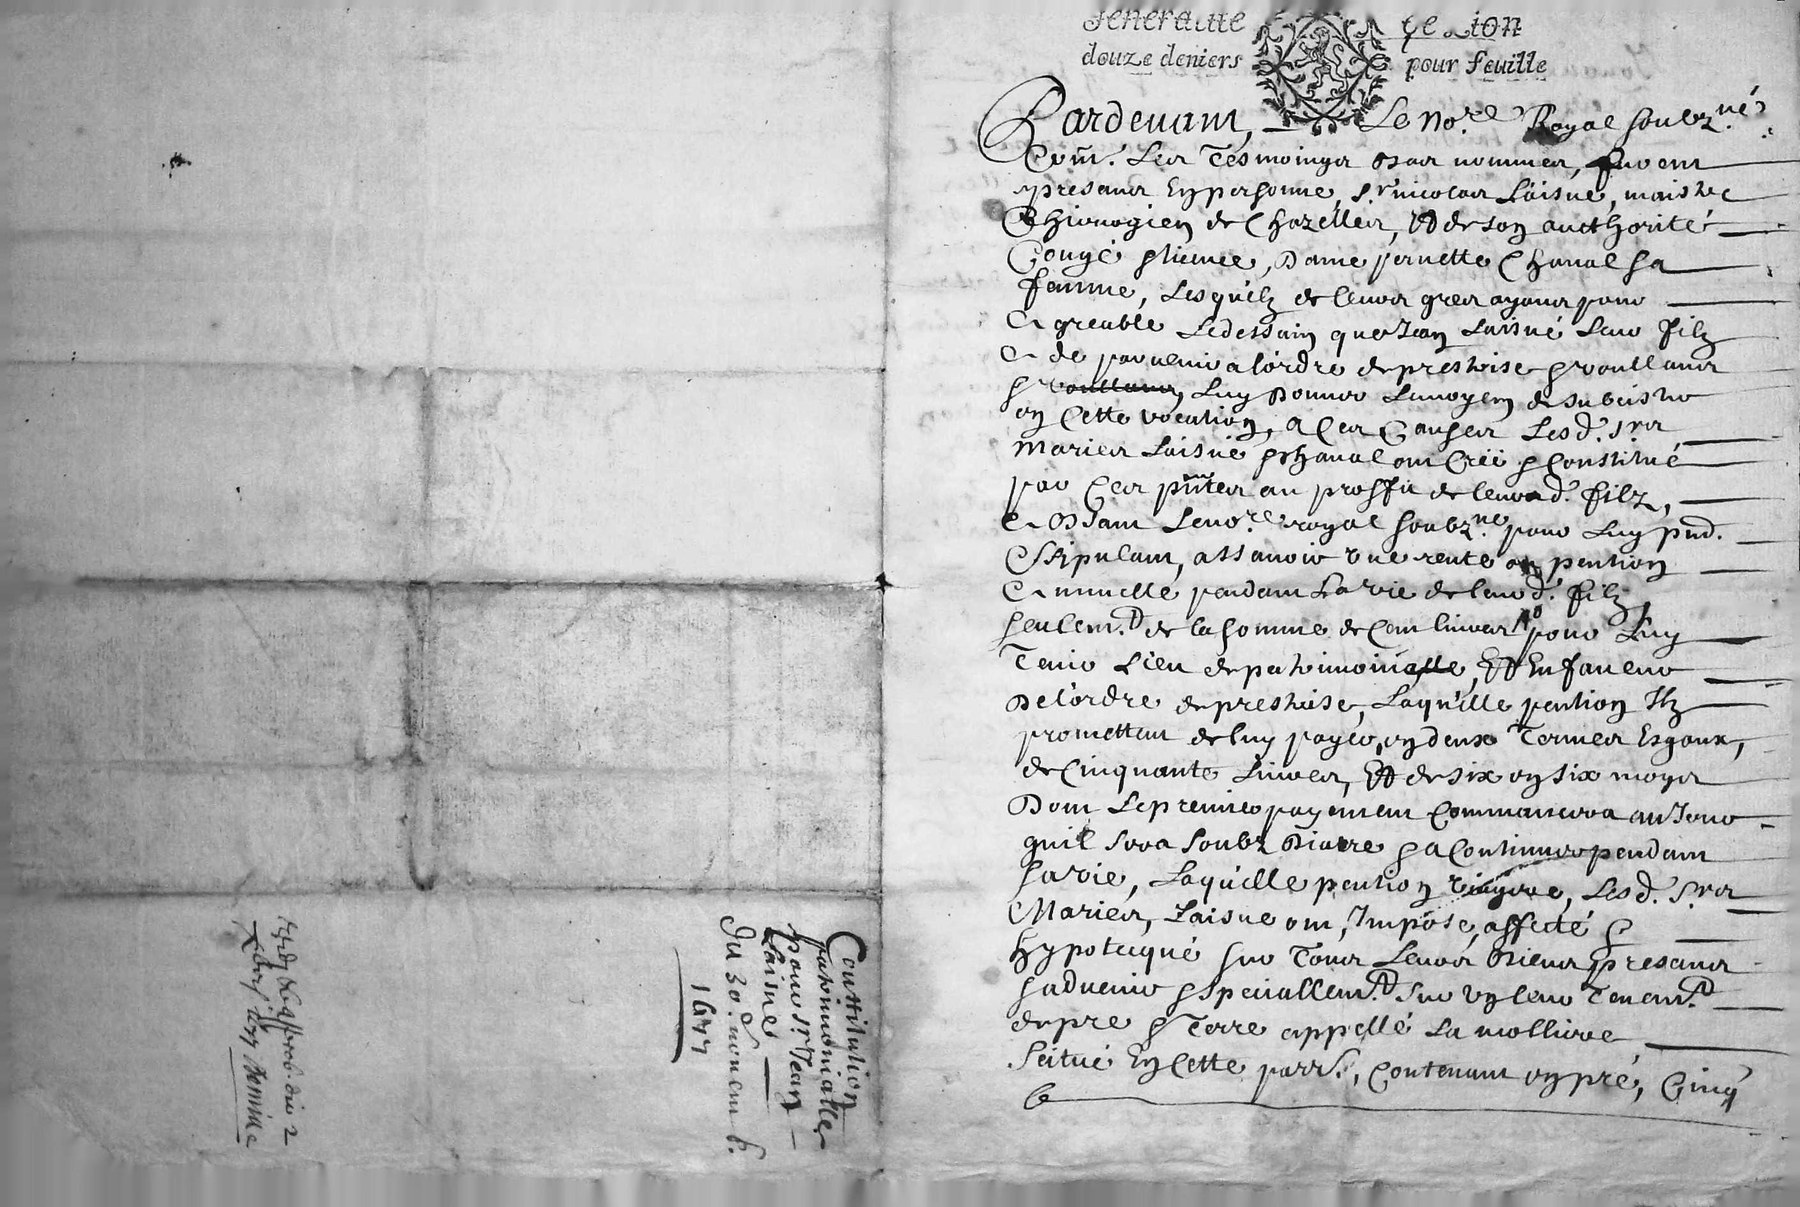 Generalité de Lion
douze deniers pour feuille
Pardevant, Le no.re Royal soubz.né
Et les tesmoings bas nommes, furent
presans en personne, s.r nicolas Laisné, maistre
Chirurgien de Chazelles, Et de son aucthorité
Congé & licence, dame pernette Chanal sa
femme, Lesquelz de leurs gres ayans pour
agreable Le dessain que Jean Laisné leur filz
a de parvenir a l'ordre de prestrise & voullans
Luy donner Le moyen de subcister
en Cette vocation, a Ces Causes Lesd. s.rs
Maries Laisné & Chanal ont Creé & Constitué
par Ces pntes au proffit de leurd. filz,
absant Le no.re royal soubz.né pour Luy pnt.
Stipulant, assavoir une rente ou pention
Annuelle pendant La vie de leurd. filz
seulem.t de la somme de Cent livres pour Luy
Tenir Lieu de patrimoine, Et En faveur
De l'ordre de prestrise, Laquelle pention Ilz
promettent de luy payer, en deux Termes Esgaux,
de Cinquante Livres, Et de six en six moys
Dont Le premier payement Commancera au Jour
quil sera soubz Diacre & a Continuer pendant
sa vie, Laquelle pention viagere, Lesd. s.rs
Maries, Laisné ont, Imposé, affecté &
hypotecqué sur Tous Leurs biens presans
& advenir & speciallem.t sur un leur Tenem.t
de pre & Terre appellé La molliere
Scitué En Cette parr.e, Contenant en pré, Cinq
Constitution
patrimonialle
pour s.r Jean
Laisné
du 30. novemb.
1677